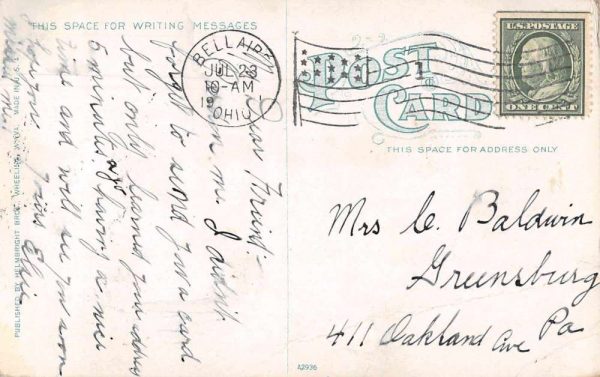 THIS SPACE FOR WRITING MESSAGES
My
Dear Friend:-
I didn't
forget to send you a card
but only learned your address
5 minutes ago
having a nice
time and will see you soon
Yours
PUBLISHED BY HELMBRIGHT BROS. WHEELING, W.VA. MADE IN U.S.
BELLAIRE
JUL 23
10-AM
19
OHIO
POST CARD
U.S. POSTAGE
ONE CENT
THIS SPACE FOR ADDRESS ONLY
Mrs C. Baldwin
Greensburg
Pa
411 Oakland Ave
A2936